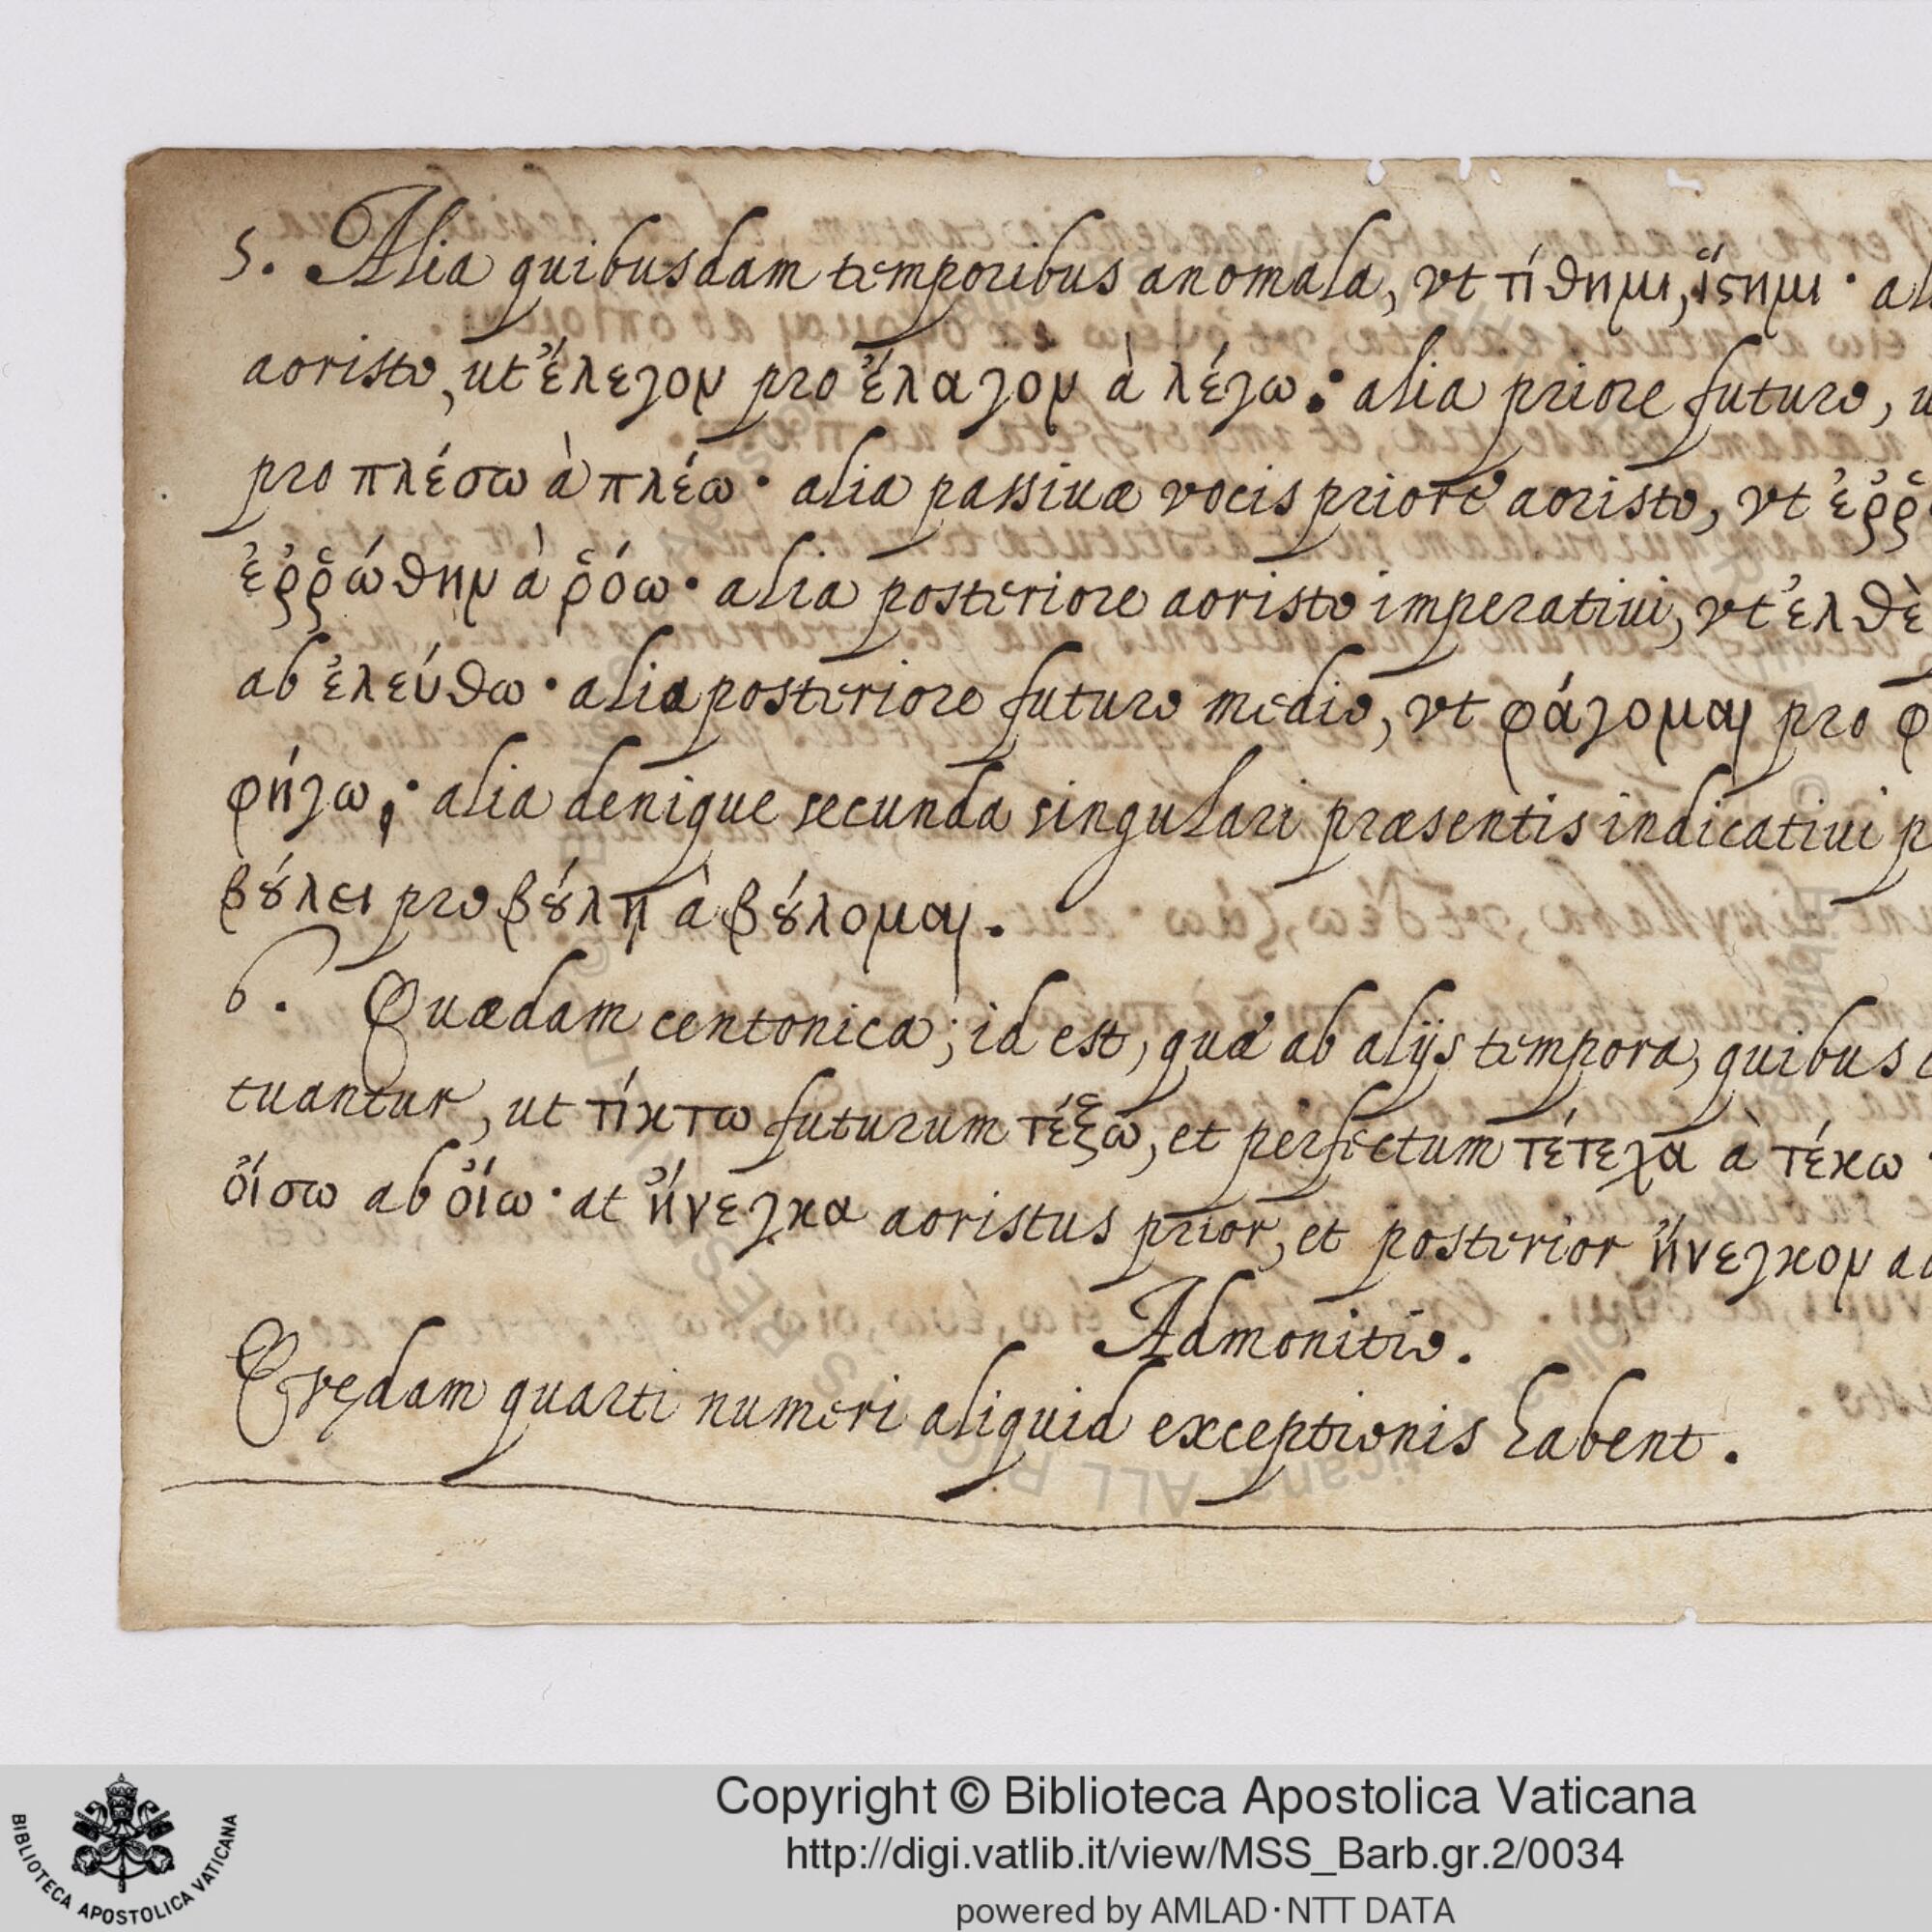 5. Alia quibusdam temporibus anomala, vt τίθημι, ἵϛημι · al
aoristo, ut ἔλεγον pro ἔλαγον à λέγω : alia priore futuro, u
pro πλέσω à πλέω · alia passiuæ vocis priore aoristo, vt ἐῤῥ
ἐῤῥώθην à ῥόω · alia posteriore aoristo imperatiui, vt ἐλθὲ
ab ἐλεύθω · alia posteriore futuro medio, vt φάγομαι pro φ
φήγω, · alia denique secunda singulari præsentis indicatiui p
βȣ́λει pro βȣ́λῃ à βȣ́λομαι.
6. Quædam centonica; id est, quæ ab alijs tempora, quibus
tuantur, ut τίκτω futurum τέξω, et perfectum τέτεχα à τέκω
οἴσω ab οἴω · at ἤνεγκα aoristus prior, et posterior ἤνεγκον a
Admonitio.
Qvędam quarti numeri aliquid exceptionis habent.
BIBLIOTECA APOSTOLICA VATICANA
Copyright © Biblioteca Apostolica Vaticana
http://digi.vatlib.it/view/MSS_Barb.gr.2/0034
powered by AMLAD·NTT DATA